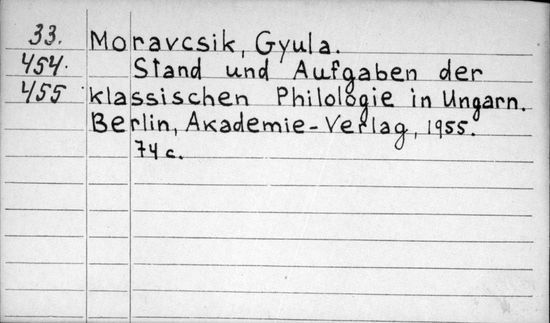 33. Moravcsik, Gyula.
454. Stand und Aufgaben der
455 klassischen Philologie in Ungarn.
Berlin, Akademie-Verlag, 1955.
74 c.